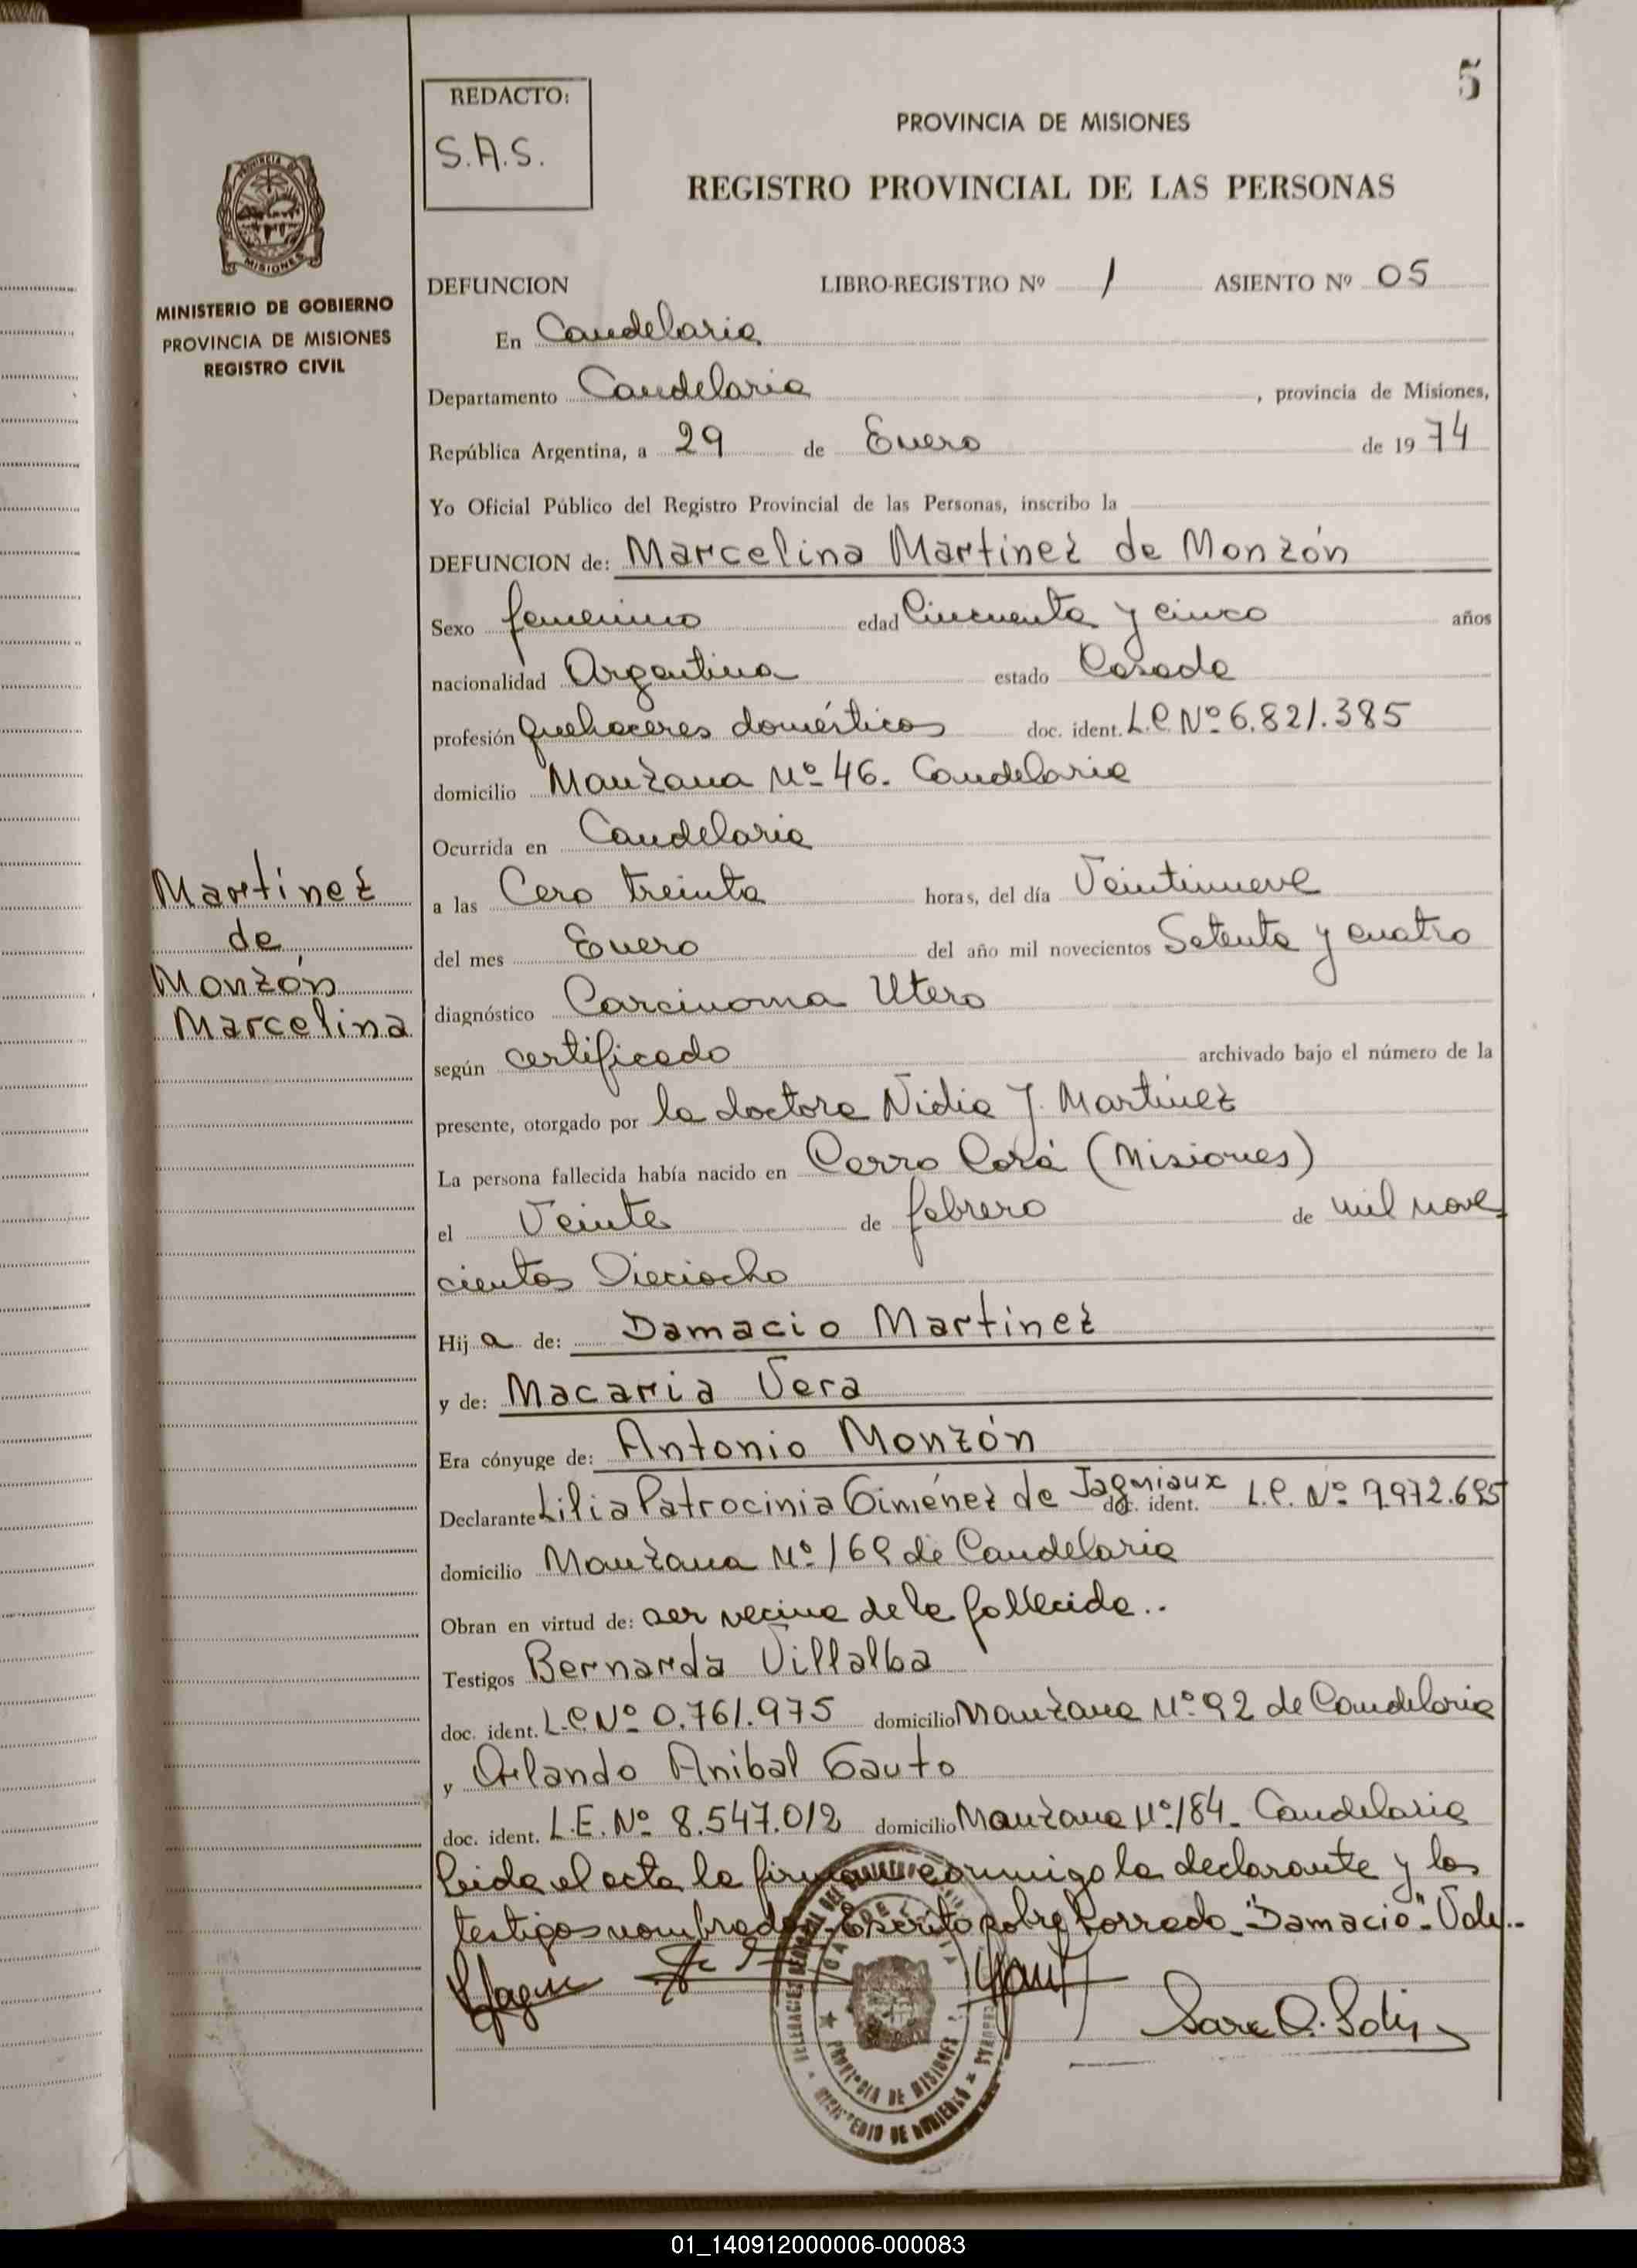 5
REDACTO:
S.A.S.
PROVINCIA DE MISIONES
REGISTRO PROVINCIAL DE LAS PERSONAS
MISIONES
MINISTERIO DE GOBIERNO
PROVINCIA DE MISIONES
REGISTRO CIVIL
DEFUNCION LIBRO-REGISTRO Nº 1 ASIENTO Nº 05
En Candelaria
Departamento Candelaria, provincia de Misiones,
República Argentina, a 29 de Enero de 1974
Yo Oficial Público del Registro Provincial de las Personas, inscribo la
DEFUNCION de: Marcelina Martinez de Monzón
Sexo femenino edad Cincuenta y cinco años
nacionalidad Argentina estado Casada
profesión Quehaceres domésticos doc. ident. L.C. Nº 6.821.385
domicilio Manzana Nº 46. Candelaria
Ocurrida en Candelaria
a las Cero treinta horas, del día Veintinueve
del mes Enero del año mil novecientos Setenta y cuatro
diagnóstico Carcinoma Utero
según certificado archivado bajo el número de la
presente, otorgado por la doctora Nidia J. Martinez
La persona fallecida había nacido en Cerro Corá (Misiones)
el Veinte de febrero de mil nove
cientos Dieciocho
Hija de: Damacio Martinez
y de: Macaria Vera
Era cónyuge de: Antonio Monzón
Declarante Lilia Patrocinia Giménez de Jagniaux doc. ident. L.C. Nº 9.972.695
domicilio Manzana Nº 169 de Candelaria
Obran en virtud de: ser vecina de la fallecida..
Testigos Bernarda Villalba
doc. ident. L.C Nº 0.761.975 domicilio Manzana Nº 92 de Candelaria
y Orlando Anibal Gauto
doc. ident. L.E. Nº 8.547.012 domicilio Manzana Nº 184. Candelaria
Leida el acta la firman conmigo la declarante y los
testigos nombrados. Escrito sobre borrado "Damacio". Vale..
Martinez
de
Monzón
Marcelina
Sara
PROVINCIA DE MISIONES
MINISTERIO DE GOBIERNO
01_140912000006-000083